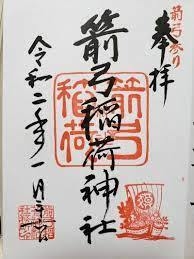 箭弓参り
奉拝
箭弓稲荷神社
箭弓
稲荷
令和二年一月